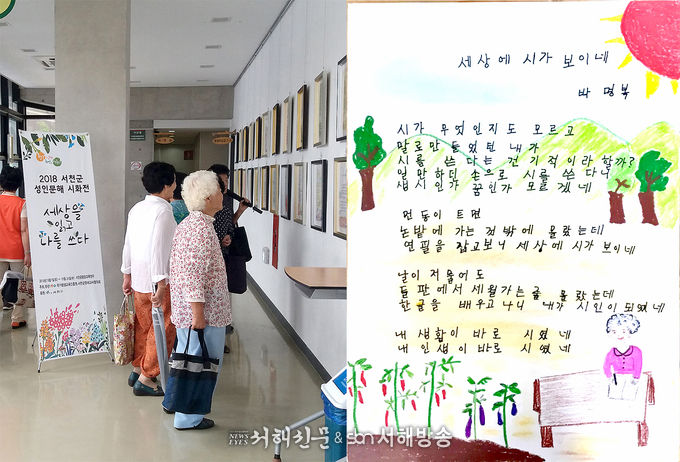 2018 서천군
성인문해 시화전
세상을
읽고
나를 쓰다
세상에 시가 보이네
박명복
시가 무엇인지도 모르고
말로만 들었던 내가
시를 쓴다는 건 기적이라 할까?
일만하던 손으로 시를 쓰다니
생시인가 꿈인가 모르겠네
먼동이 트면
논밭에 가는 것 밖에 몰랐는데
연필을 잡고보니 세상에 시가 보이네
날이 저물어도
들판에서 세월가는줄 몰랐는데
한글을 배우고나니 내가 시인이 되었네
내 생활이 바로 시였네
내 인생이 바로 시였네
NEWS EYES 서해신문 & sbn서해방송